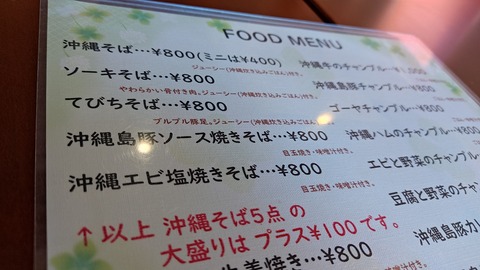 FOOD MENU
沖縄そば…¥800(ミニは¥400)
ジューシー(沖縄炊き込みごはん)付き。
ソーキそば…¥800
やわらかい骨付き肉。ジューシー(沖縄炊き込みごはん)付き。
てびちそば…¥800
プルプル豚足。ジューシー(沖縄炊き込みごはん
沖縄島豚ソース焼きそば…¥800
目玉焼き・味噌汁付き。
沖縄エビ塩焼きそば…¥800
目玉焼き・味噌汁付き。
↑以上 沖縄そば5点 の
大盛りは プラス¥100 です。
焼き…¥800
沖縄牛のチャンプルー
沖縄島豚チャンプルー…¥800
ゴーヤチャンプルー…¥800
沖縄ハムのチャンプルー
エビと野菜のチャンプル
豆腐と野菜のチャン
沖縄島豚カ